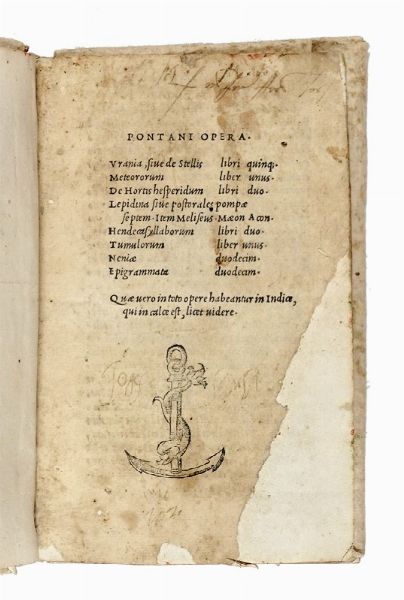 PONTANI OPERA.
Vrania, siue de Stellis libri quinq;.
Meteororum liber unus.
De Hortis hesperidum libri duo.
Lepidina siue postorales pompæ
septem. Item Meliseus. Mæon Acon.
Hendecasyllaborum libri duo.
Tumulorum liber unus.
Neniæ duodecim.
Epigrammata duodecim.
Quæ uero in toto opere habeantur in Indice,
qui in calce est, licet uidere.